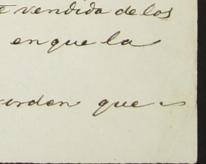 vendida de los
en que la
orden que